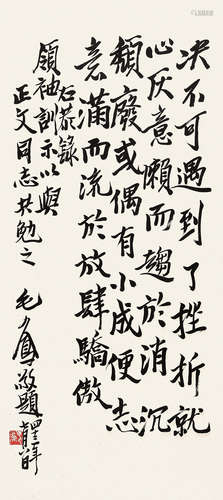 决不可遇到了挫折就
心灰意懒而趋於消沉
颓廢或偶有小成便志
意满而流於放肆驕傲
右恭錄
領袖訓示以與
正文同志共勉之
毛人鳳敬題